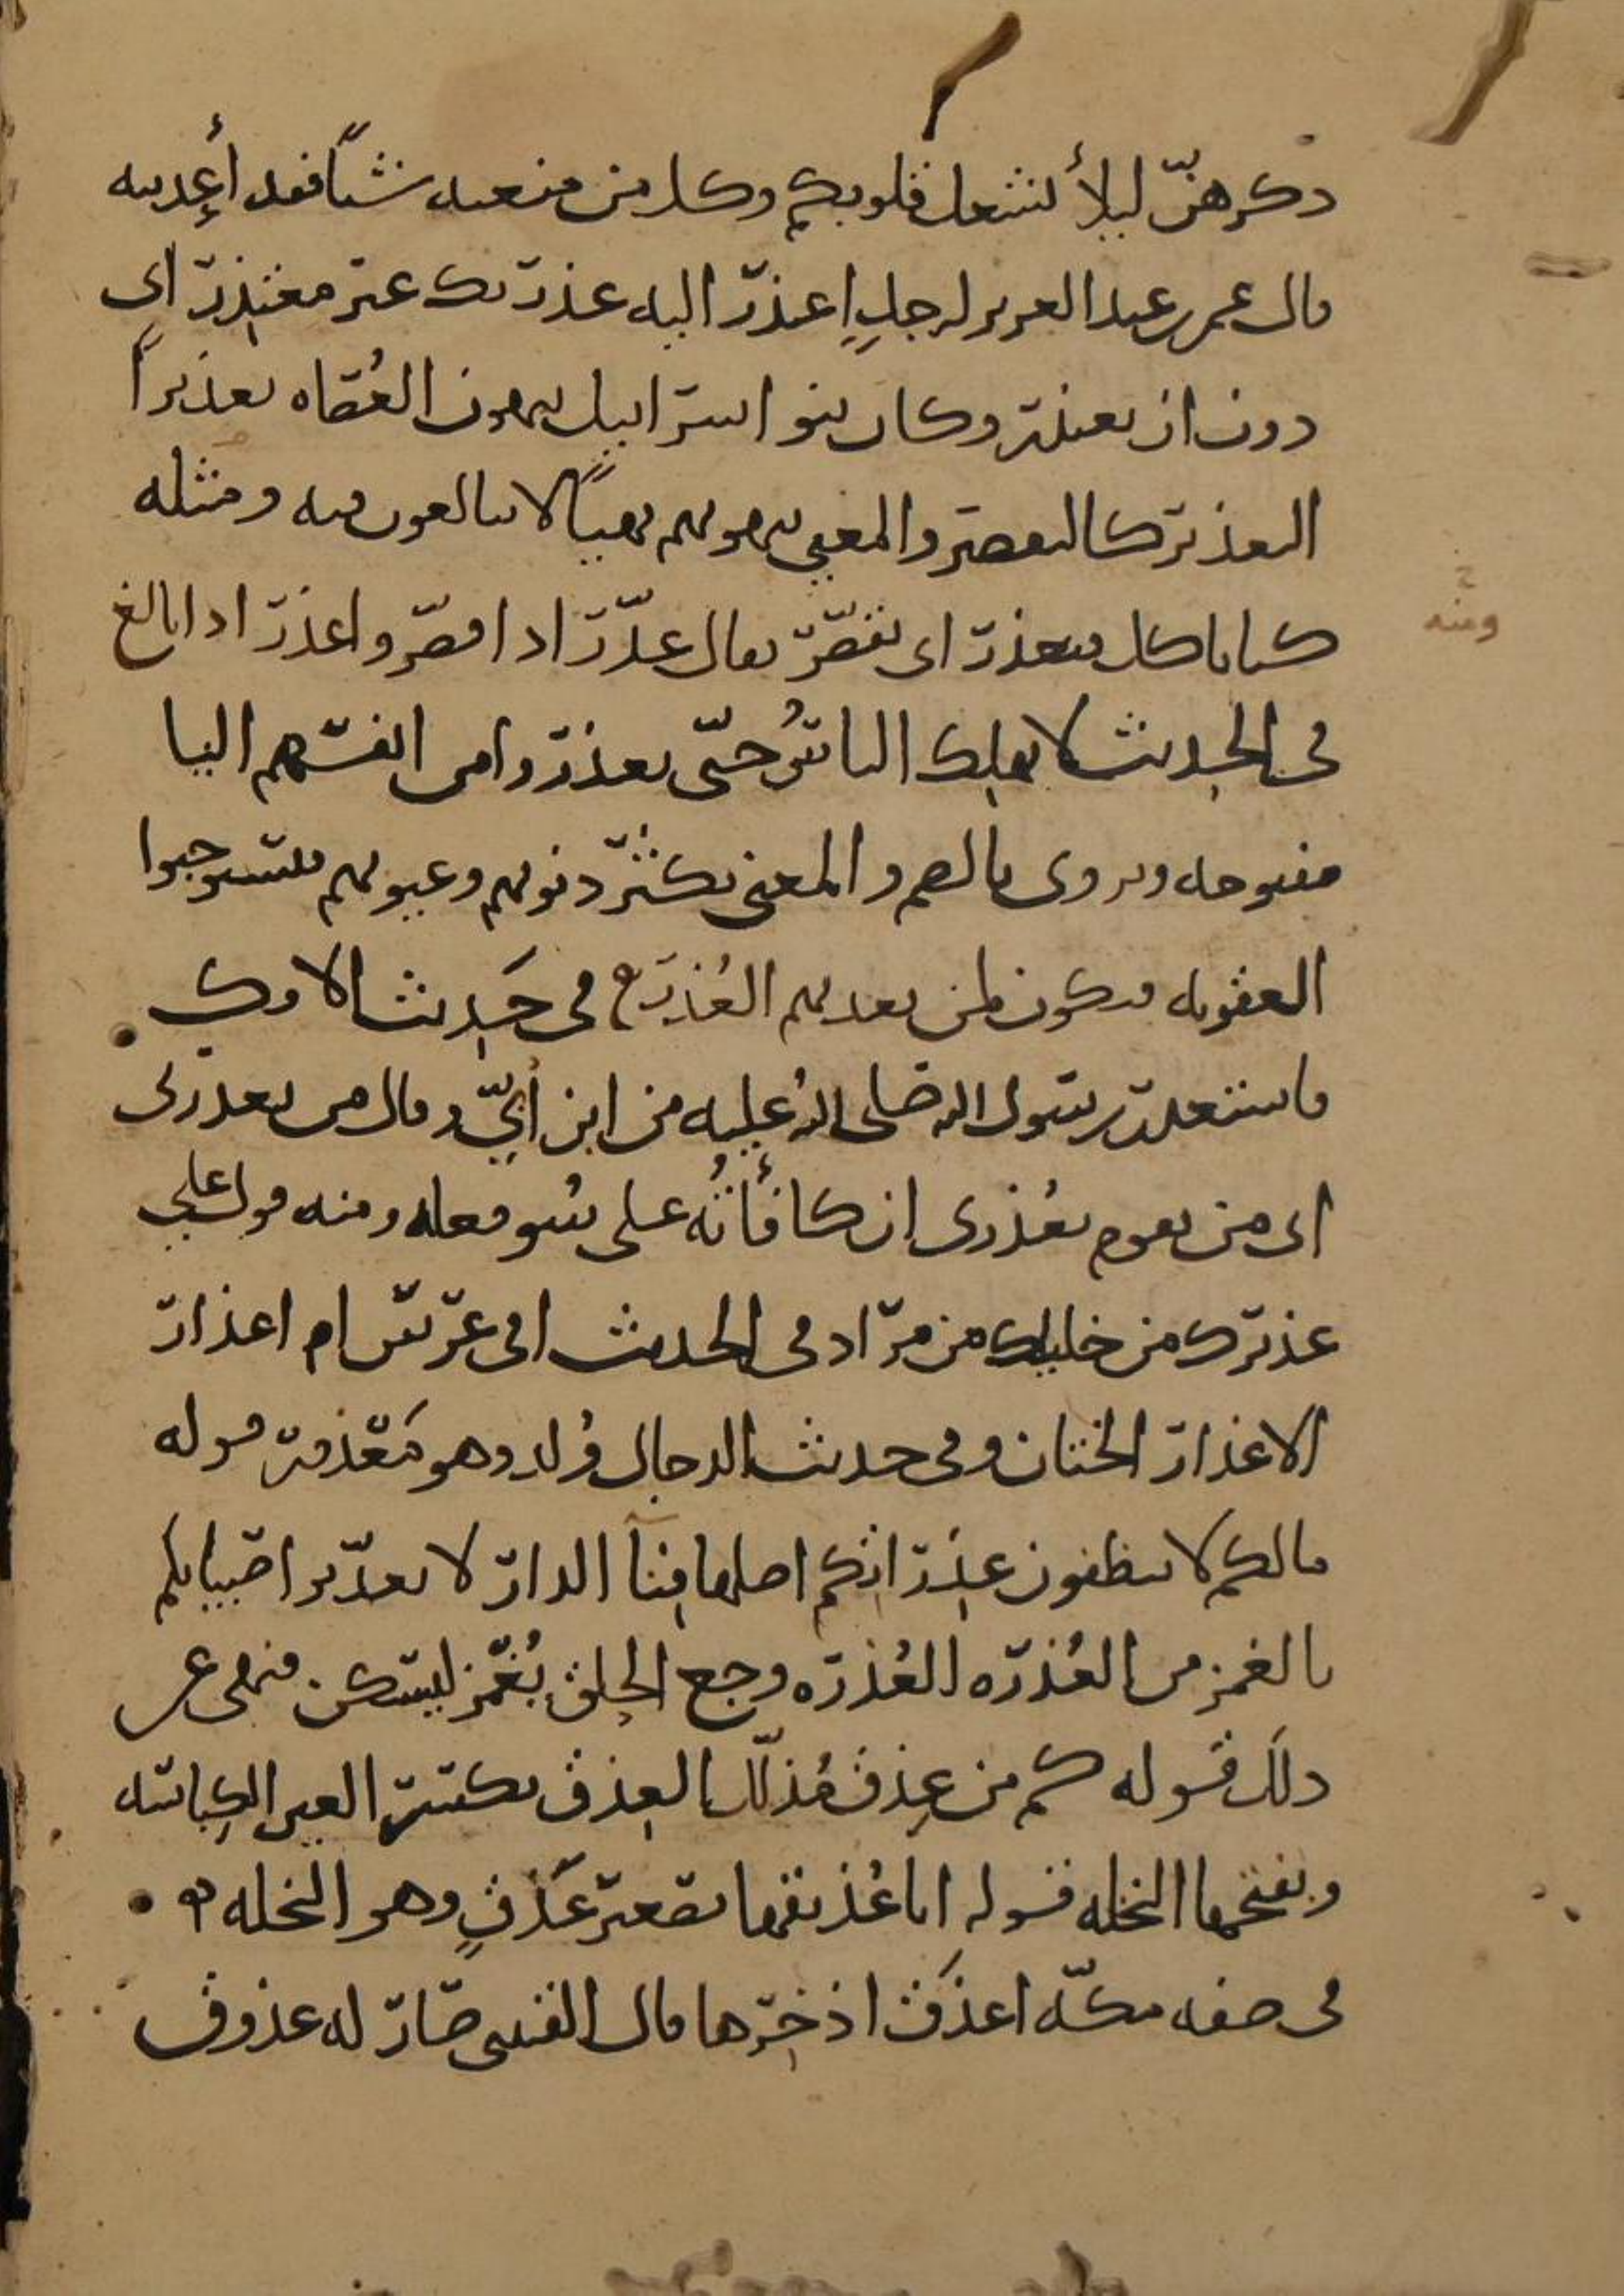 ذكرهنّ ليلاً تشغل قلوبكم وكل من منعته شيئًا فقد أعذبته
قال عمر بن عبد العزيز لرجلٍ اعتذر اليه عذرتك غير معتذر اى
دون ان تعتذر وكان بنو اسرائيل ينهون العُصاه تعذيرًا
التعذير كالتقصير والمعنى ينهونهم نهيًا لا يبالغون فيه ومثله
كنا ناكل فنعذر اى نقصّر يقال عذّر اذا قصّر واعذر اذا بالغ
ومنه
فى الحديث لا يهلك الناسُ حتّى يعذروا من انفسهم اليا
مفتوحه ويروى بالضم والمعنى تكثر ذنوبهم وعيوبهم فيستوجبوا
العقوبه فيكون لمن يعذبهم العُذر فى حَديث الافك
فاستعذر رسول الله صلى الله عليه من ابن أبيّ وقال من يعذرنى
اى من يقوم بعُذرى ان كافأتُه على سُو فعله ومنه قول على
عذيرك من خليلك من مراد فى الحديث افى عرس ام اعذار
الاعذار الختان وفى حديث الدجال وُلد وهو مَعْذور قوله
مالكم لا تنظفون عذراتكم اصلها فِنآ الدار لا تعذّبوا صبيانكم
بالغمز من العُذره العُذره وجع الحلق يُغمز ليسكن فنهى عن
ذلك قوله كم من عِذق مُذلّل العِذق بكسر العين الكباسه
وبفتحها النخله قوله انا عُذيقها تصغير عَذقٍ وهو النخله
فى صفه مكّه اعذَق اذخرها قال القتبى صار له عذوق